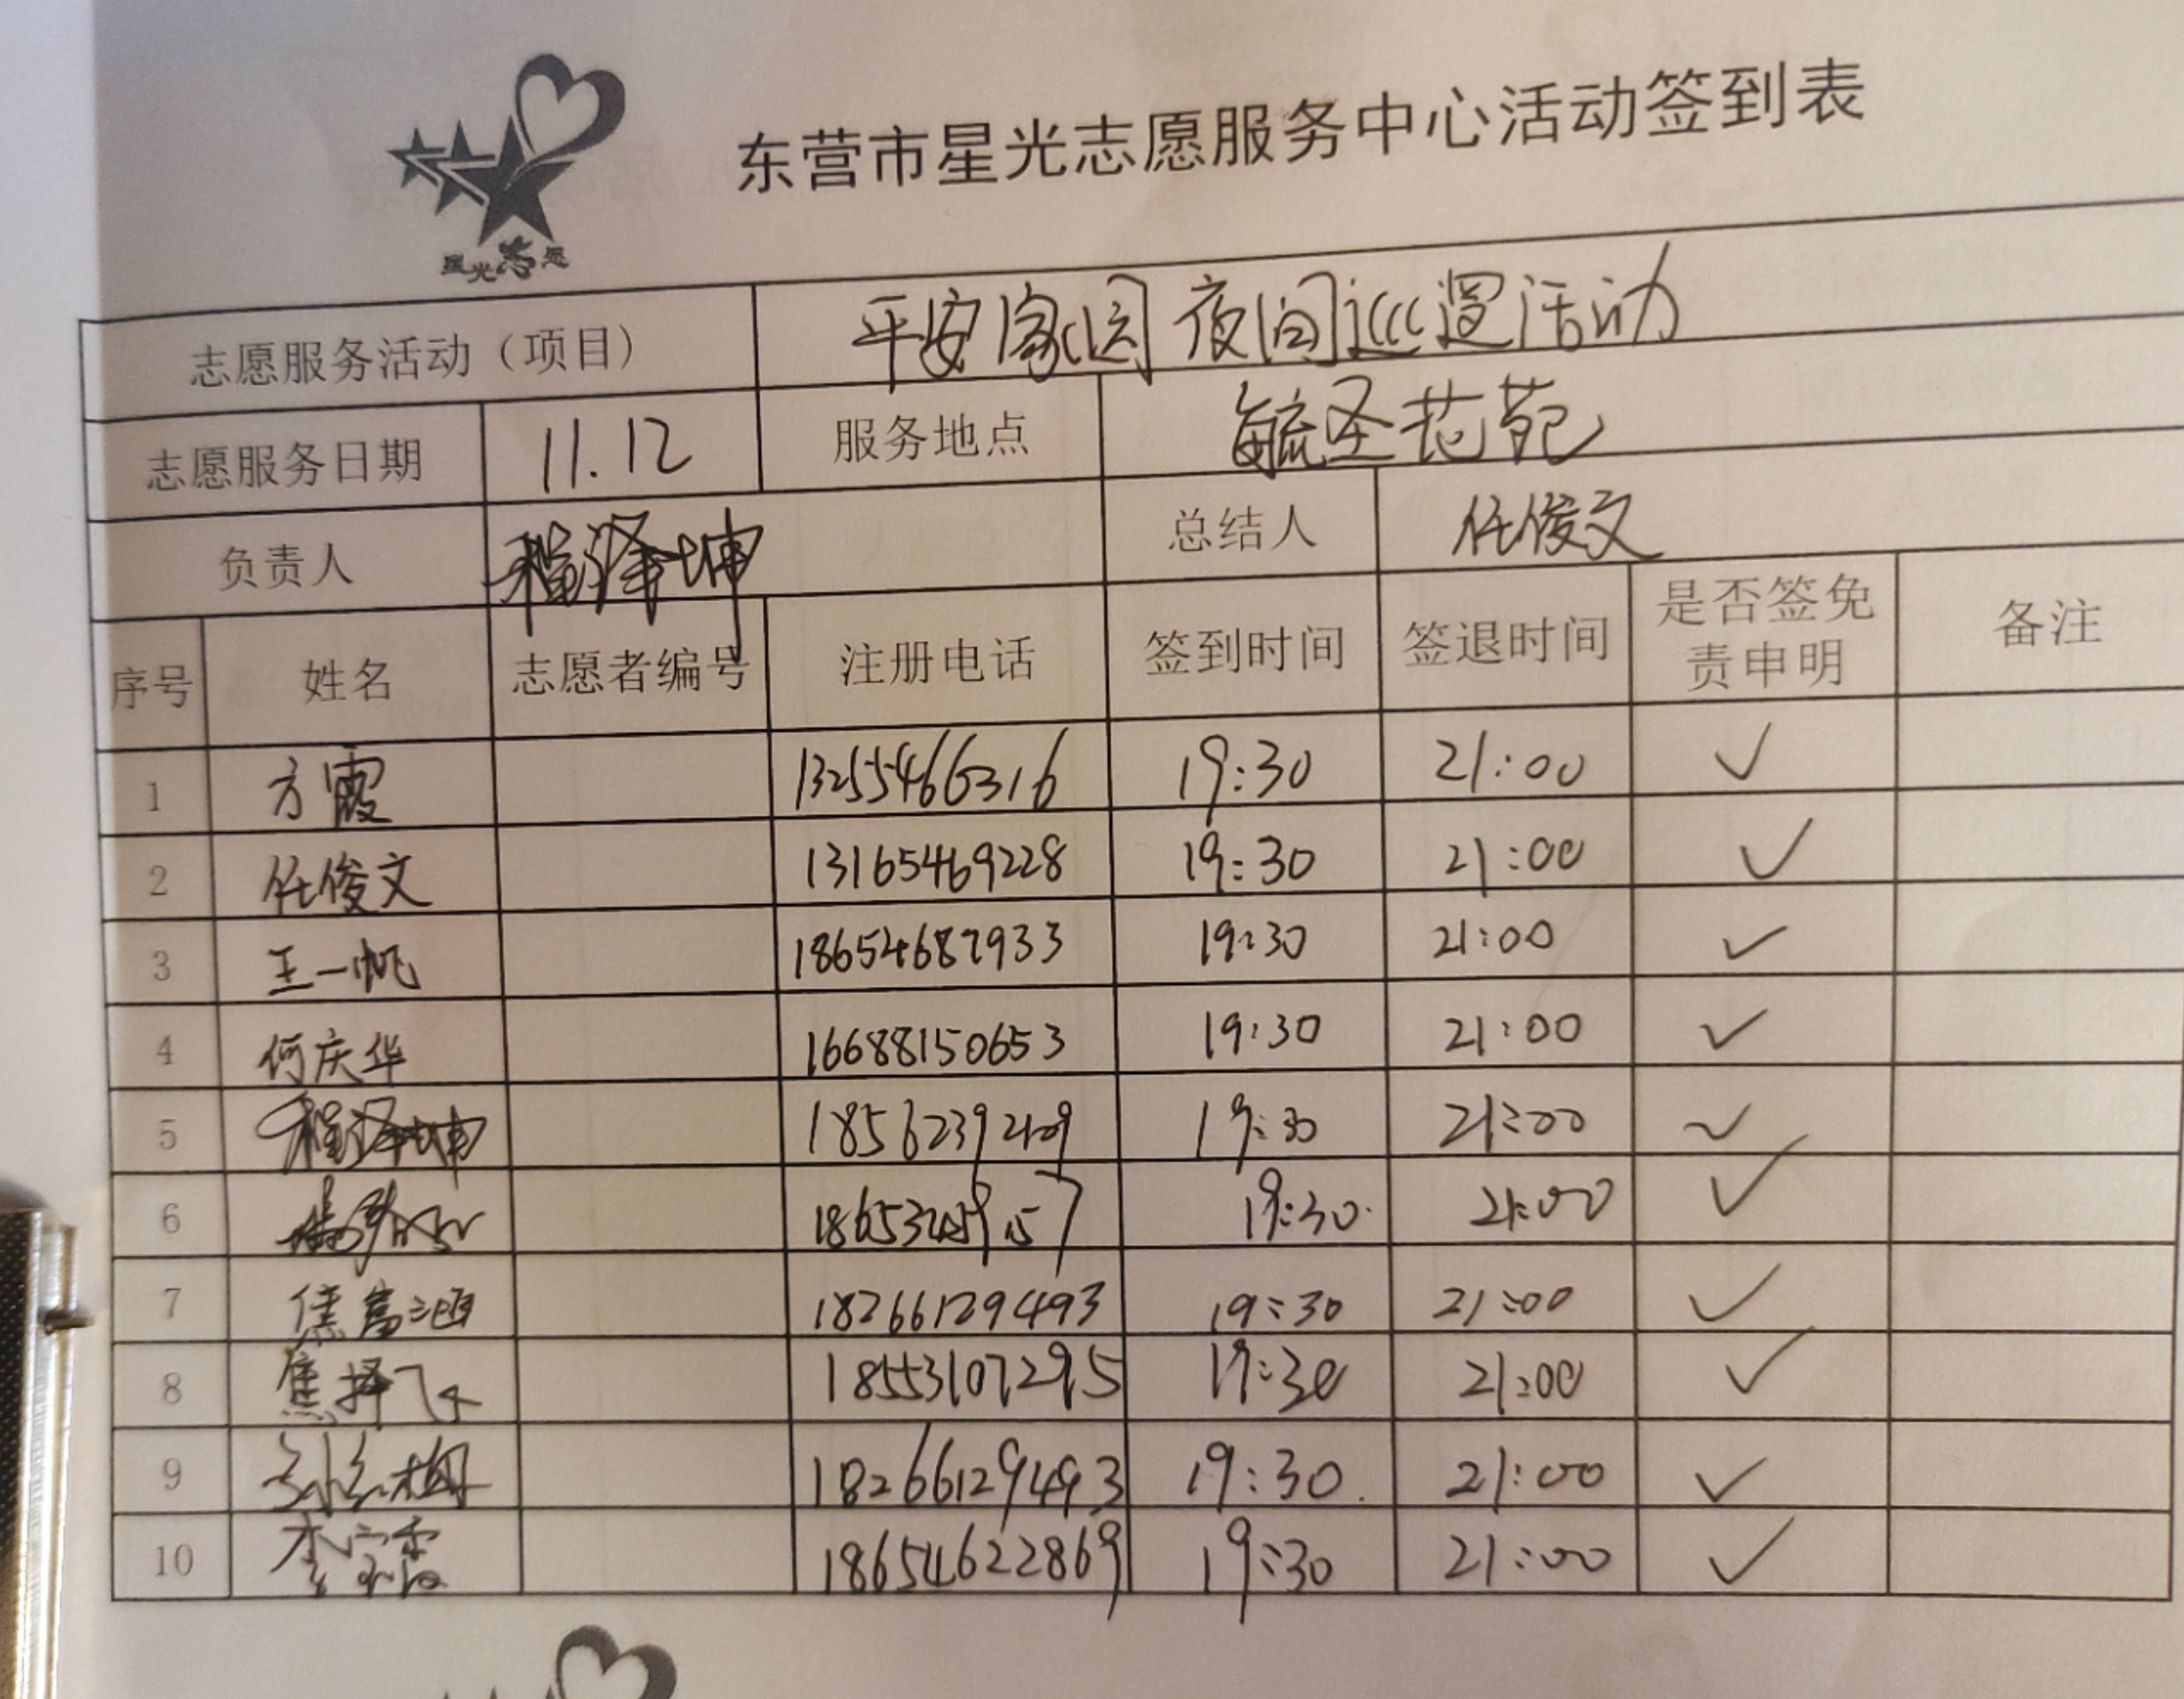 东营市星光志愿服务中心活动签到表
星光志愿
志愿服务活动（项目） 平安家园夜间巡逻活动
志愿服务日期 11.12 服务地点 毓圣芯苑
负责人 程泽坤 总结人 任俊文
序号 姓名 志愿者编号 注册电话 签到时间 签退时间 是否签免责申明 备注
1 方霞 13255466316 19:30 21:00 ✓
2 任俊文 13165469228 19:30 21:00 ✓
3 王一帆 18654687933 19:30 21:00 ✓
4 何庆华 16688150653 19:30 21:00 ✓
5 程泽坤 18562392409 19:30 21:00 ✓
6 19:30 21:00 ✓
7 焦富涵 18266129493 19:30 21:00 ✓
8 焦择飞 18553107295 19:30 21:00 ✓
9 18266129493 19:30 21:00 ✓
10 18654622869 19:30 21:00 ✓